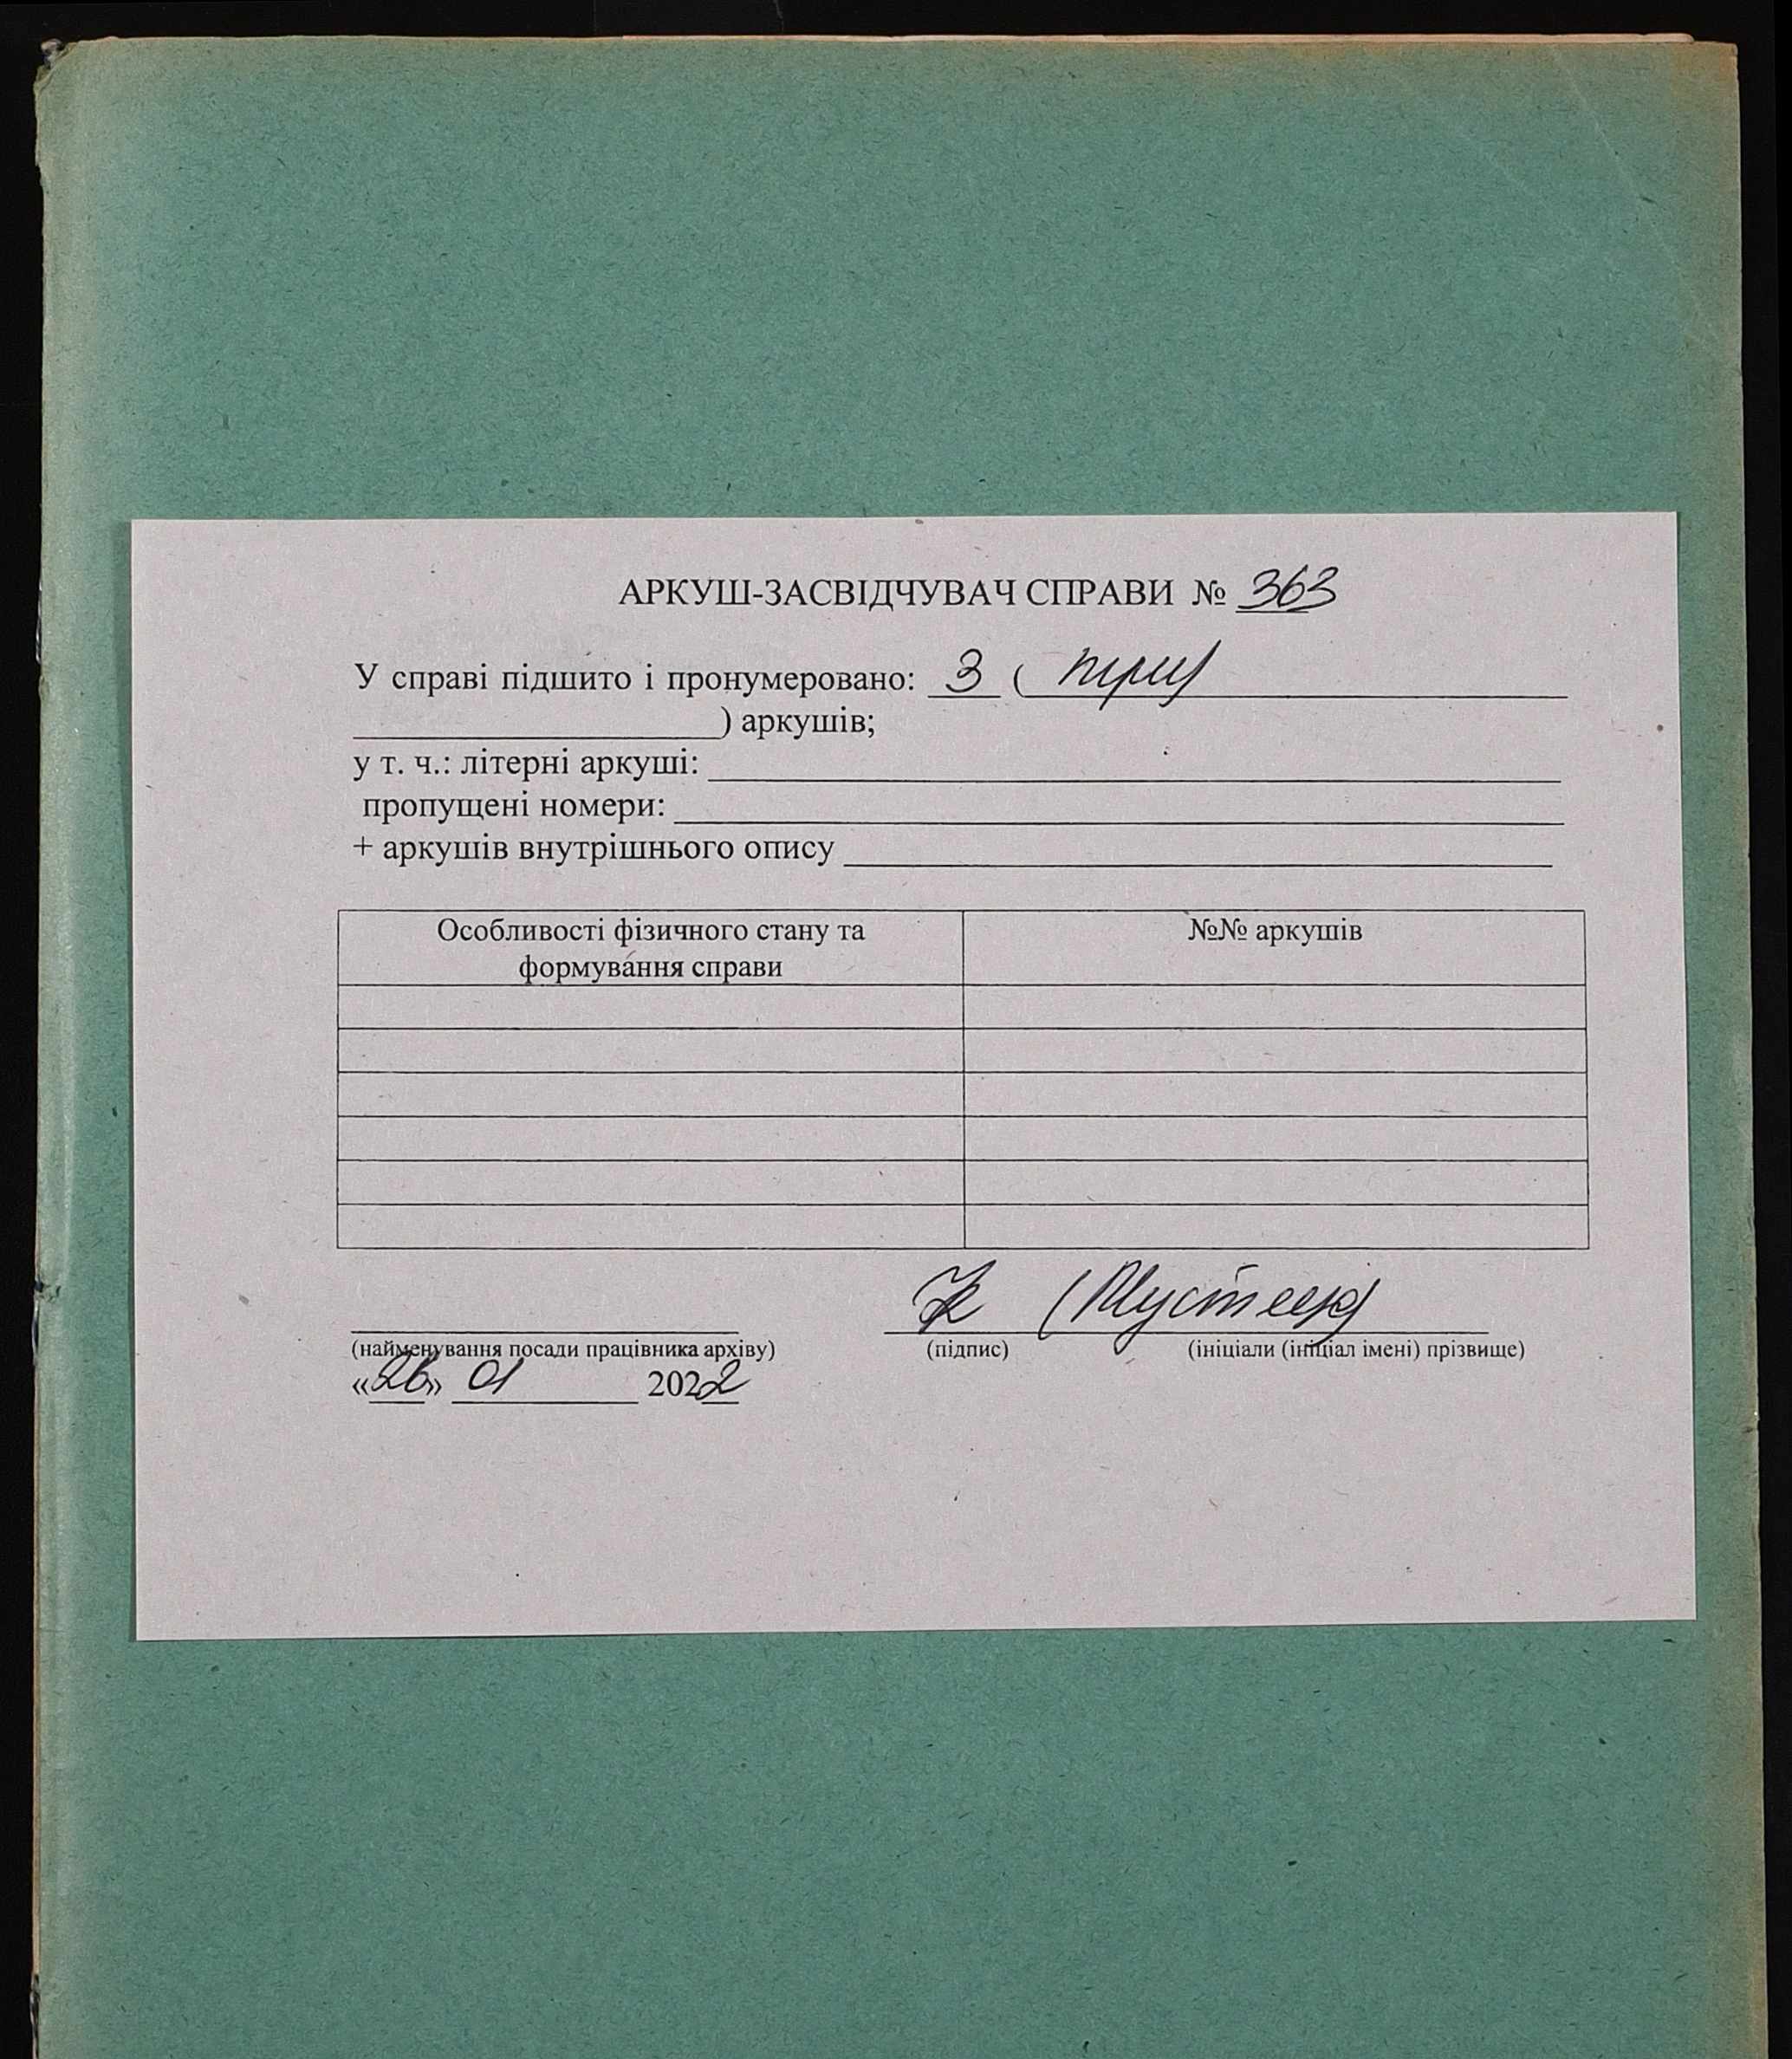 АРКУШ-ЗАСВІДЧУВАЧ СПРАВИ № 363
У справі підшито і пронумеровано: 3 ( три
) аркушів;
у т. ч.: літерні аркуші:
пропущені номери:
+ аркушів внутрішнього опису
Особливості фізичного стану та
формування справи
№№ аркушів
(найменування посади працівника архіву) (підпис) (ініціали (ініціал імені) прізвище)
«26» 01 2022